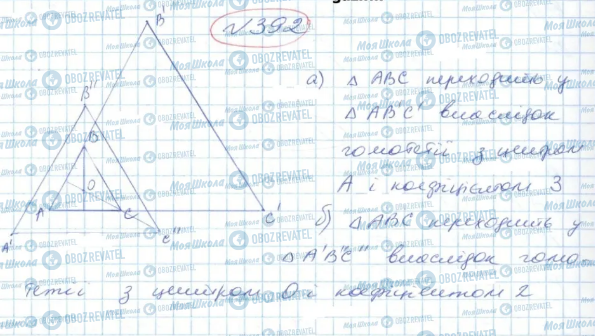 №392
B'
B''
B
O
A
C
C'
A'
C''
а) △ ABC переходить у
△ AB'C' внаслідок
гомотетії з центром
A і коефіцієнтом 3
б) △ABC переходить у
△ A'B''C'' внаслідок гомо
тетії з центром O і коефіцієнтом 2
МояШкола OBOZREVATEL